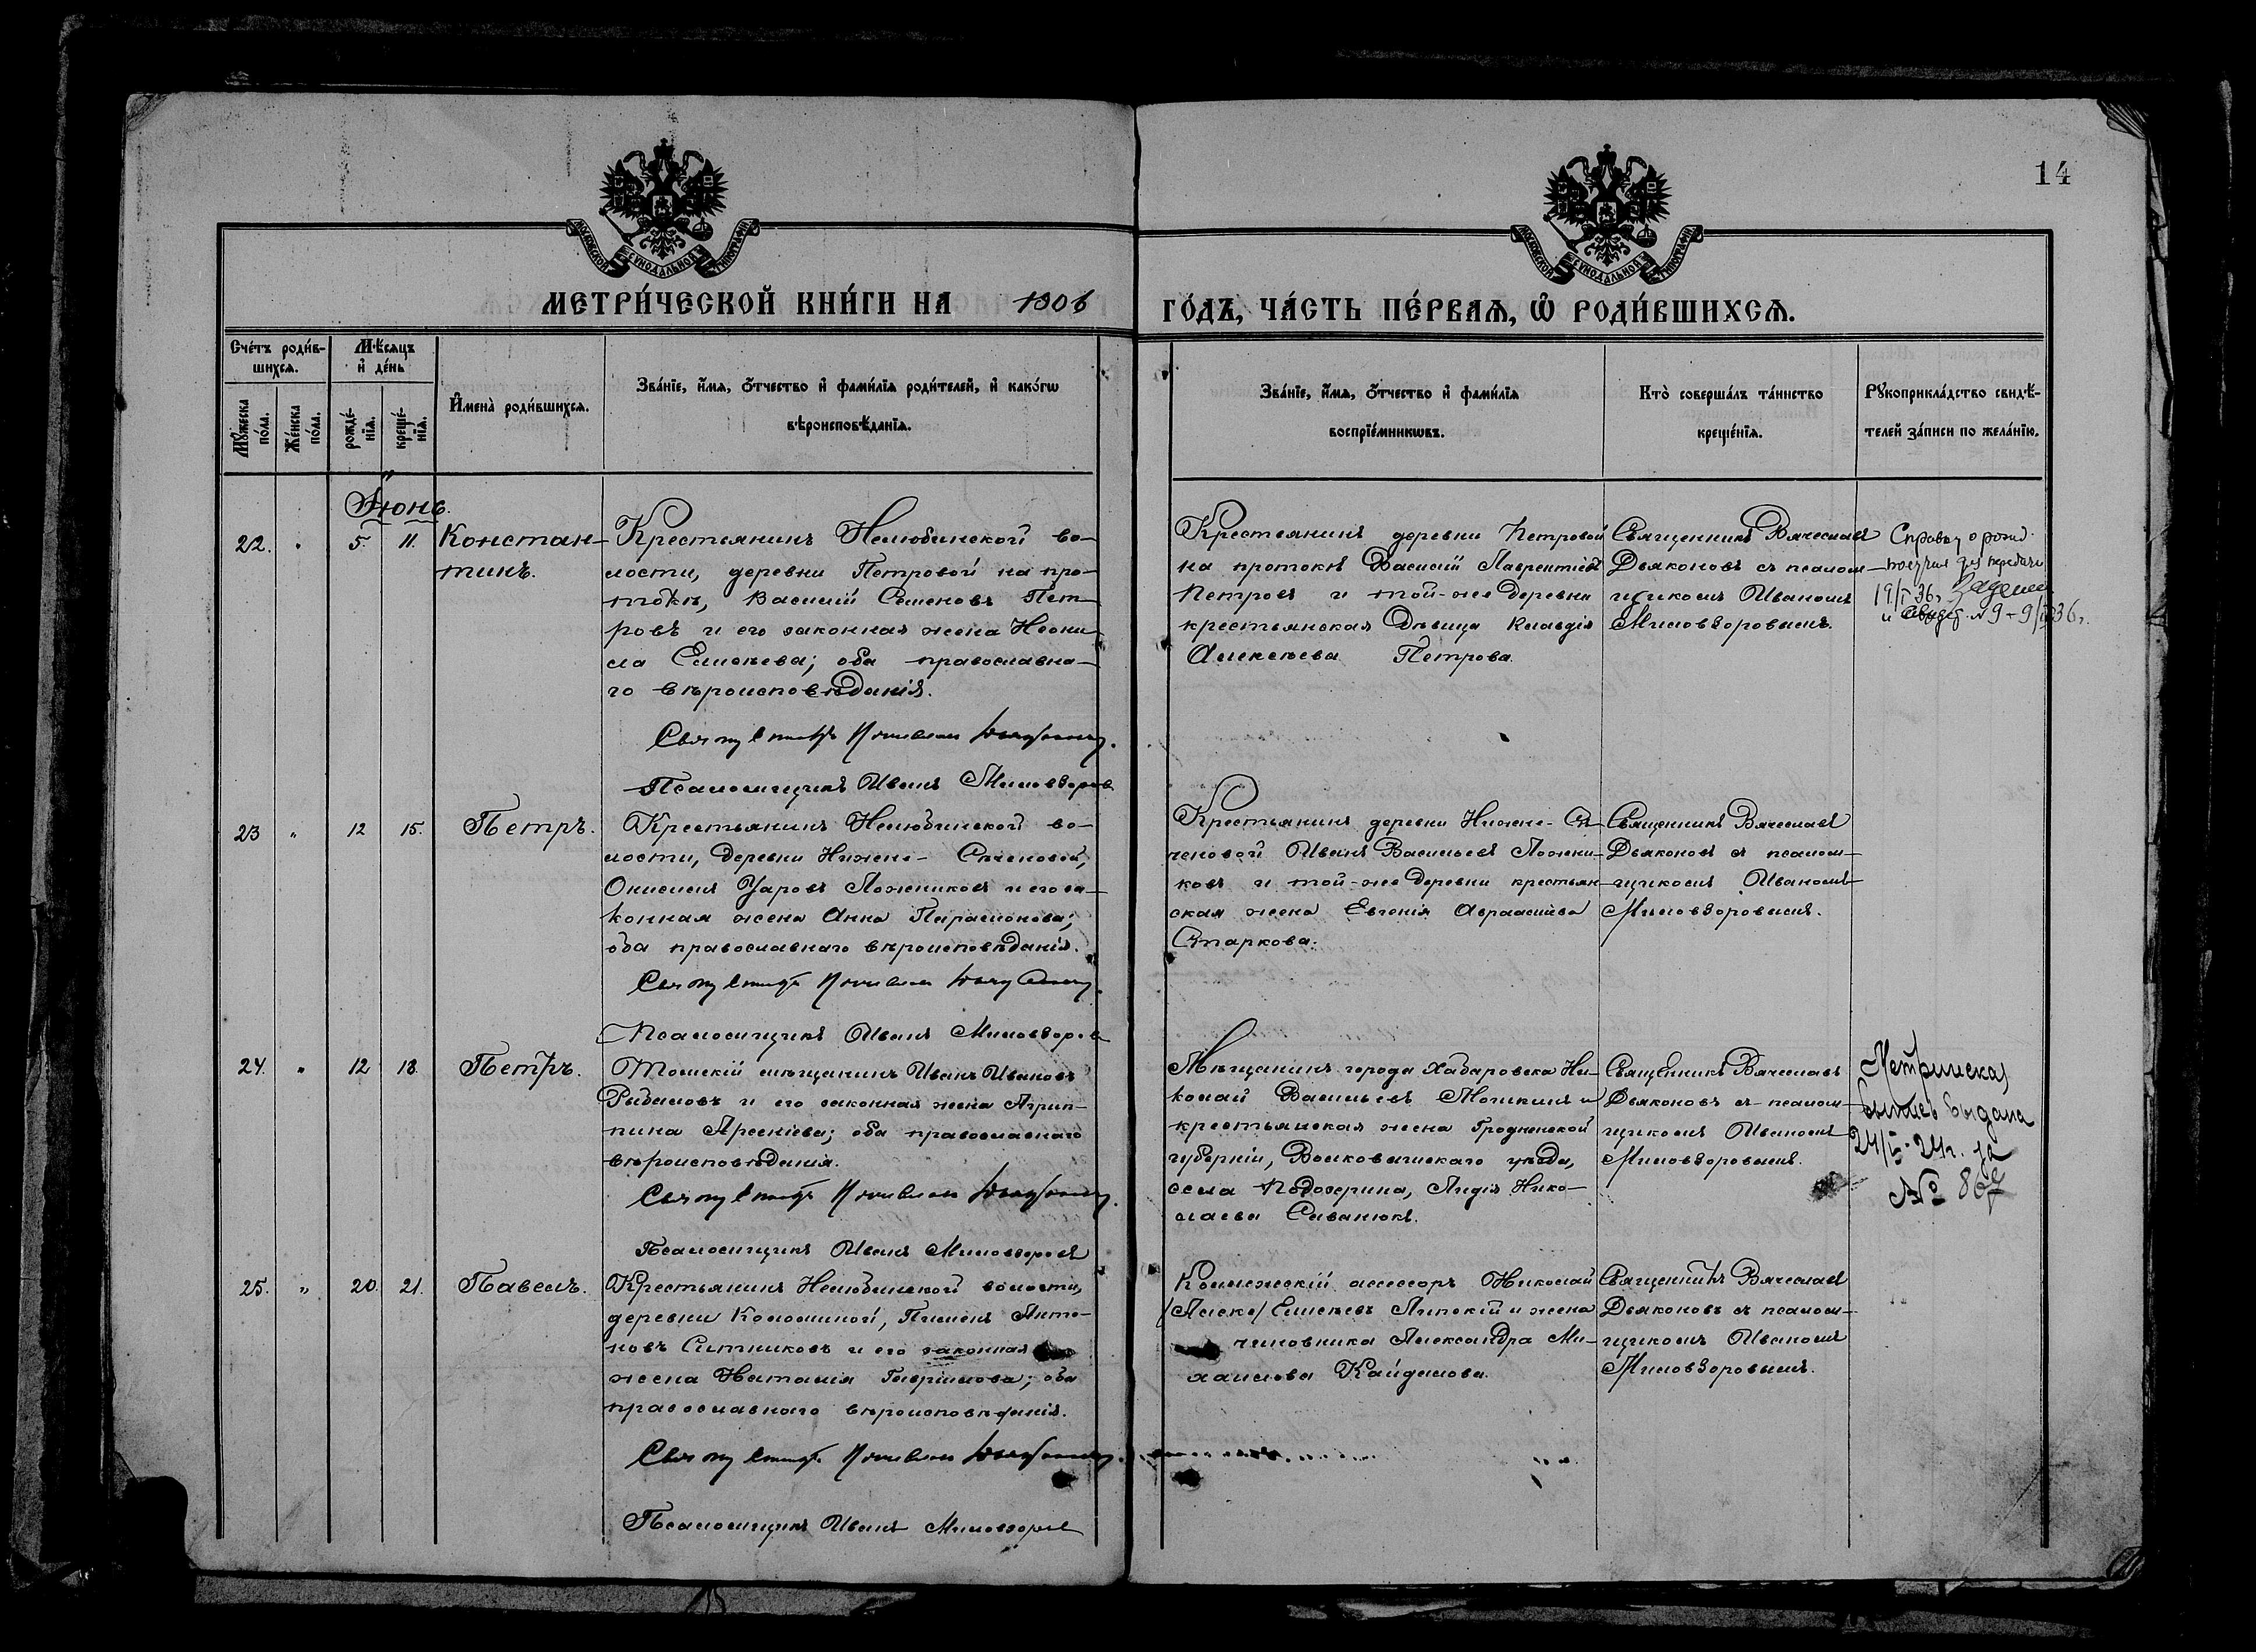 14
МОСКОВСКОЙ СѴНОДАЛЬНОЙ ТИПОГРАФІИ
МОСКОВСКОЙ СѴНОДАЛЬНОЙ ТИПОГРАФІИ
МЕТРИ́ЧЕСКОЙ КНИ́ГИ НА 1906
ГО́ДЪ, ЧА́СТЬ ПЕ́РВАѦ, Ѡ҆ РОДИ́ВШИХСѦ.
Сче́тъ роди́в-
шихсѧ.
Мꙋ́жеска
по́ла.
Же́нска
по́ла.
Мѣ́сяцъ
и҆ де́нь
рожде́-
нїѧ.
креще́-
нїѧ.
И҆мена̀ роди́вшихсѧ.
Зва́нїе, и҆́мѧ, ѻ҆́тчество и҆ фами́лїѧ роди́телей, и҆ како́гѡ
вѣроисповѣ́данїѧ.
Зва́нїе, и҆́мѧ, ѻ҆́тчество и҆ фами́лїѧ
воспрїе́мникѡвъ.
Кто̀ соверша́лъ та́инство
креще́нїѧ.
Рꙋкоприкла́дство свидѣ́-
телей за́писи по жела́нїю.
Іюнь.
22. " 5. 11. Констан-
тинъ.
Крестьянинъ Нелюбинской во-
лости, деревни Петровой на про-
токѣ, Василій Сѵменовъ Пет-
ровъ и его законная жена Неони-
ла Елисѣева; оба православна-
го вѣроисповѣданія.
Псаломщикъ Иванъ Миловзоровъ
Крестьянинъ деревни Петровой
на протокѣ Василій Лаврентіевъ
Петровъ и той-же деревни
крестьянская дѣвица Клавдія
Алексѣева Петрова.
Священникъ Вячеславъ
Дьяконовъ съ псалом-
щикомъ Иваномъ
Миловзоровымъ.
Справку о рожд.
получил для передачи
23 " 12 15. Петръ.
Крестьянинъ Нелюбинской во-
лости, деревни Нижне-Сѣченовой,
Онисимъ Уаровъ Ложниковъ и его за-
конная жена Анна Парамонова;
оба православнаго вѣроисповѣданія.
Псаломщикъ Иванъ Миловзоровъ
Крестьянинъ деревни Нижне-Сѣ-
ченовой Иванъ Васильевъ Ложни-
ковъ и той-же деревни крестьян-
ская жена Евгенія Авраамова
Старкова.
Священникъ Вячеславъ
Дьяконовъ съ псалом-
щикомъ Иваномъ
Миловзоровымъ.
24. " 12 18. Петръ.
Томскій мѣщанинъ Иванъ Ивановъ
Рыбаловъ и его законная жена Агрип-
пина Арсеніева; оба православнаго
вѣроисповѣданія.
Псаломщикъ Иванъ Миловзоровъ
Мѣщанинъ города Хабаровска Ни-
колай Васильевъ Мошкинъ и
крестьянская жена Гродненской
губерніи, Волковышскаго уѣзда,
села Подозерина, Лидія Нико-
лаева Саванюкъ.
Священникъ Вячеславъ
Дьяконовъ съ псалом-
щикомъ Иваномъ
Миловзоровымъ.
Метрическая
выпись выдана
№ 867
25. " 20. 21. Павелъ.
Крестьянинъ Нелюбинской волости,
деревни Коломиной, Пименъ Анто-
новъ Ситниковъ и его законная
жена Наталія Гавриилова; оба
православнаго вѣроисповѣданія.
Псаломщикъ Иванъ Миловзоровъ
Коллежскій ассесоръ Николай
/Алекс/ Елисѣевъ Липскій и жена
чиновника Александра Ми-
хаилова Кайдалова.
Священникъ Вячеславъ
Дьяконовъ съ псалом-
щикомъ Иваномъ
Миловзоровымъ.